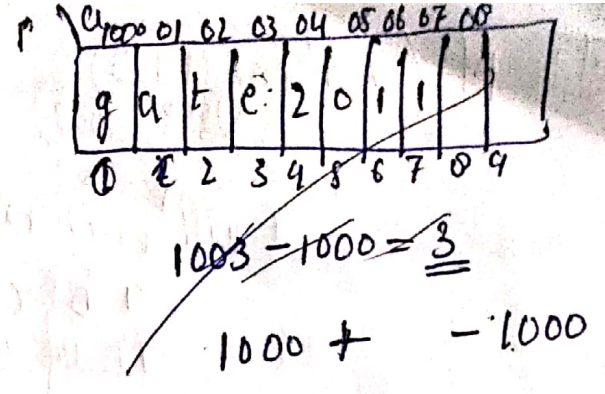 1000 01 02 03 04 05 06 07 08
g a t e 2 0 1 1
0 1 2 3 4 5 6 7 8 9
1003 - 1000 = 3
1000 + - 1000